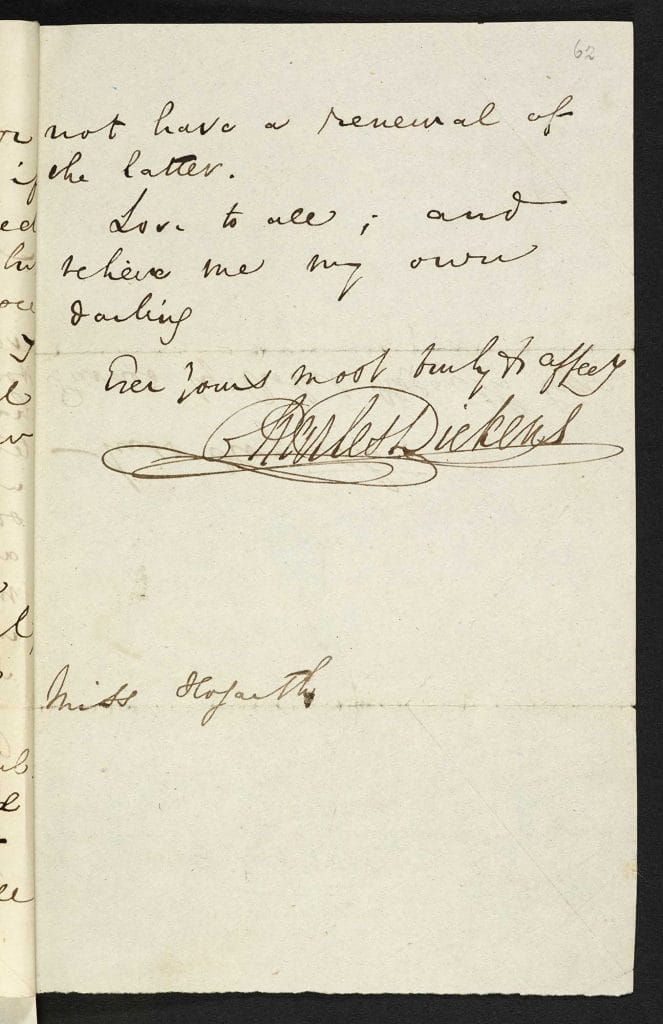 62
not have a renewal of
the latter.
Love to all ; and
believe me my own
darling
Ever Yours most truly & affecy
Charles Dickens
Miss Hogarth